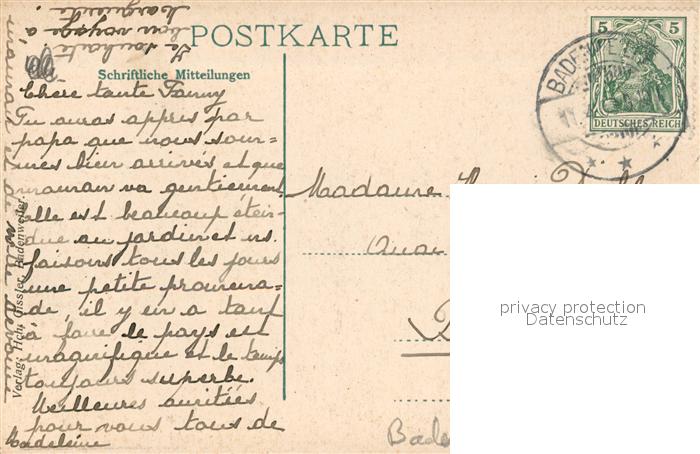 POSTKARTE
Schriftliche Mitteilungen
5 5
DEUTSCHES REICH
BADENWEILER
Je souhaite
bon voyage à
Marguerite.
Chère tante Fanny
Tu auras appris par
papa que nous som-
mes bien arrivés et que
maman va gentiment
elle est beaucoup éten-
due au jardin et ns.
faisons tous les jours
une petite promena-
de, il y en a tant
à faire le pays est
magnifique et le temps
toujours superbe.
Meilleures amitiés
pour vous tous de
maman et de votre dévouée
Madeleine
Verlag: Hch. Gissler, Badenweiler.
Madame
Quai
Bade
privacy protection
Datenschutz